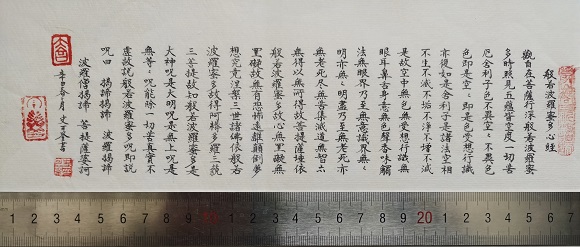 般若波羅蜜多心經
觀自在菩薩行深般若波羅蜜
多時照見五蘊皆空度一切苦
厄舍利子色不異空空不異色
色即是空空即是色受想行識
亦復如是舍利子是諸法空相
不生不滅不垢不淨不增不減
是故空中無色無受想行識無
眼耳鼻舌身意無色聲香味觸
法無眼界乃至無意識界無無
明亦無無明盡乃至無老死亦
無老死盡無苦集滅道無智亦
無得以無所得故菩提薩埵依
般若波羅蜜多故心無罣礙無
罣礙故無有恐怖遠離顛倒夢
想究竟涅槃三世諸佛依般若
波羅蜜多故得阿耨多羅三藐
三菩提故知般若波羅蜜多是
大神咒是大明咒是無上咒是
無等等咒能除一切苦真實不
虛故說般若波羅蜜多咒即說
咒曰 揭諦揭諦 波羅揭諦
波羅僧揭諦 菩提薩婆訶
1 2 3 4 5 6 7 8 9 11 12 13 14 15 16 17 18 19 20 1 2 3 4 5 6 7